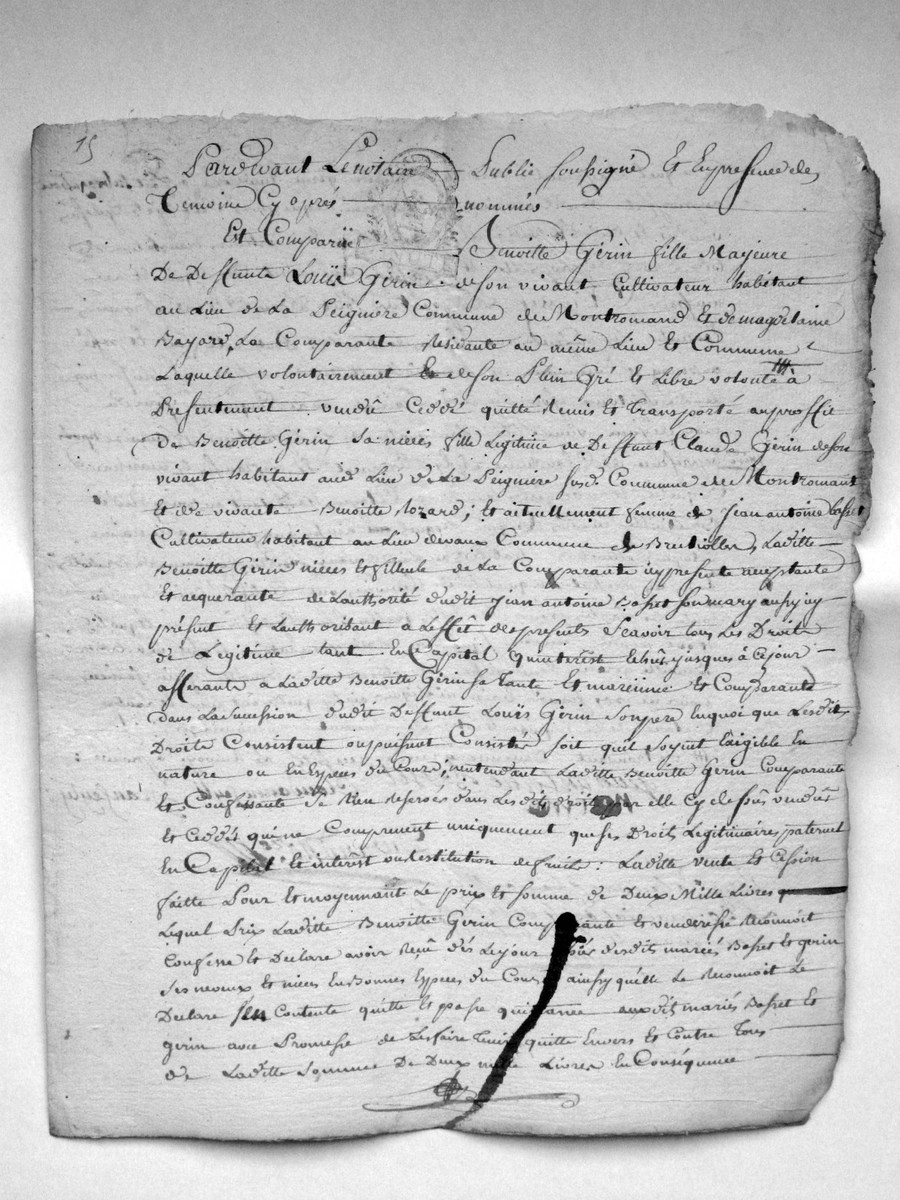 15
Pardevant Lenotaire Publie soussigné Et Enpresence des
Temoins Cy aprés nommés
Est Comparüe Benoitte Gerin fille Majeure
De Deffunt Loüis Gerin deson vivant Cultivateur habitant
au Lieu de La Seigniere Commune de Montromand Et demagdelaine
Bayard, La Comparante Residante au même Lieu Et Commune
Laquelle volontairement Et deson Plein Gré Et Libre volonté à
Presentement vendû Ceddé quitté Remis Et Transporté auproffit
De Benoitte Gerin sa niéce fille Legitime de Deffunt Claude Gerin deson
vivant habitant aud Lieu de La Seigniere susd Commune de Montromant
Et de vivante Benoitte Lozard, Et actuellement femme de jean antoine basset
Cultivateur habitant au Lieu devaux Commune de Brussiolles, Laditte
Benoitte Gerin niéce Et filleule de La Comparante icy presente acceptante
Et acquerante de Lauthorité dudit jean antoine Basset son mary aussy icy
présent Et Lauthorisant a Leffêt des presents Scavoir tous Les Droits
de Legitime tant En Capital qu'interest Echûs jusques à cejour
afferants a Laditte Benoitte Gerin sa Tante Et mareinne Et Comparante
dans La Succession dudit Deffunt Loüis Gerin Sonpere Enquoi que Lesdits
Droits Consistent oupuissent Consister soit quil soyent Exigible En
nature ou En Especes du Cours, n'entendant Laditte Benoitte Gerin Comparante
Et Confessante se Rien Reservés dans Lesdits droits par elle Cy dessûs vendûs
Et Ceddés qui ne Comprenent uniquement que ses Droits Legitimaires paternel
En Capital Et intérêt ou Restitution de fruits : Laditte vente Et Cession
faitte Pour Et moyennant Le prix Et somme de Deux Mille Livres
Lequel Prix Laditte Benoitte Gerin Comparante Et venderesse Reconnoit
Confesse Et Declare avoir Reçû dés Le jour desdits mariés Basset Et gerin
Ses neveux Et niéce En Bonnes Especes du Cours ainsy qu'elle Le Reconnoit Le
Declare sen Contente quitte Et passe quittance auxdits mariés Basset Et
gerin avec Promesse de Les faire Tenir quitte Envers Et Contre Tous
de Laditte Somme De Deux mille Livres En Conséquence